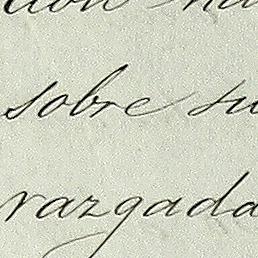 sobre su
razgada